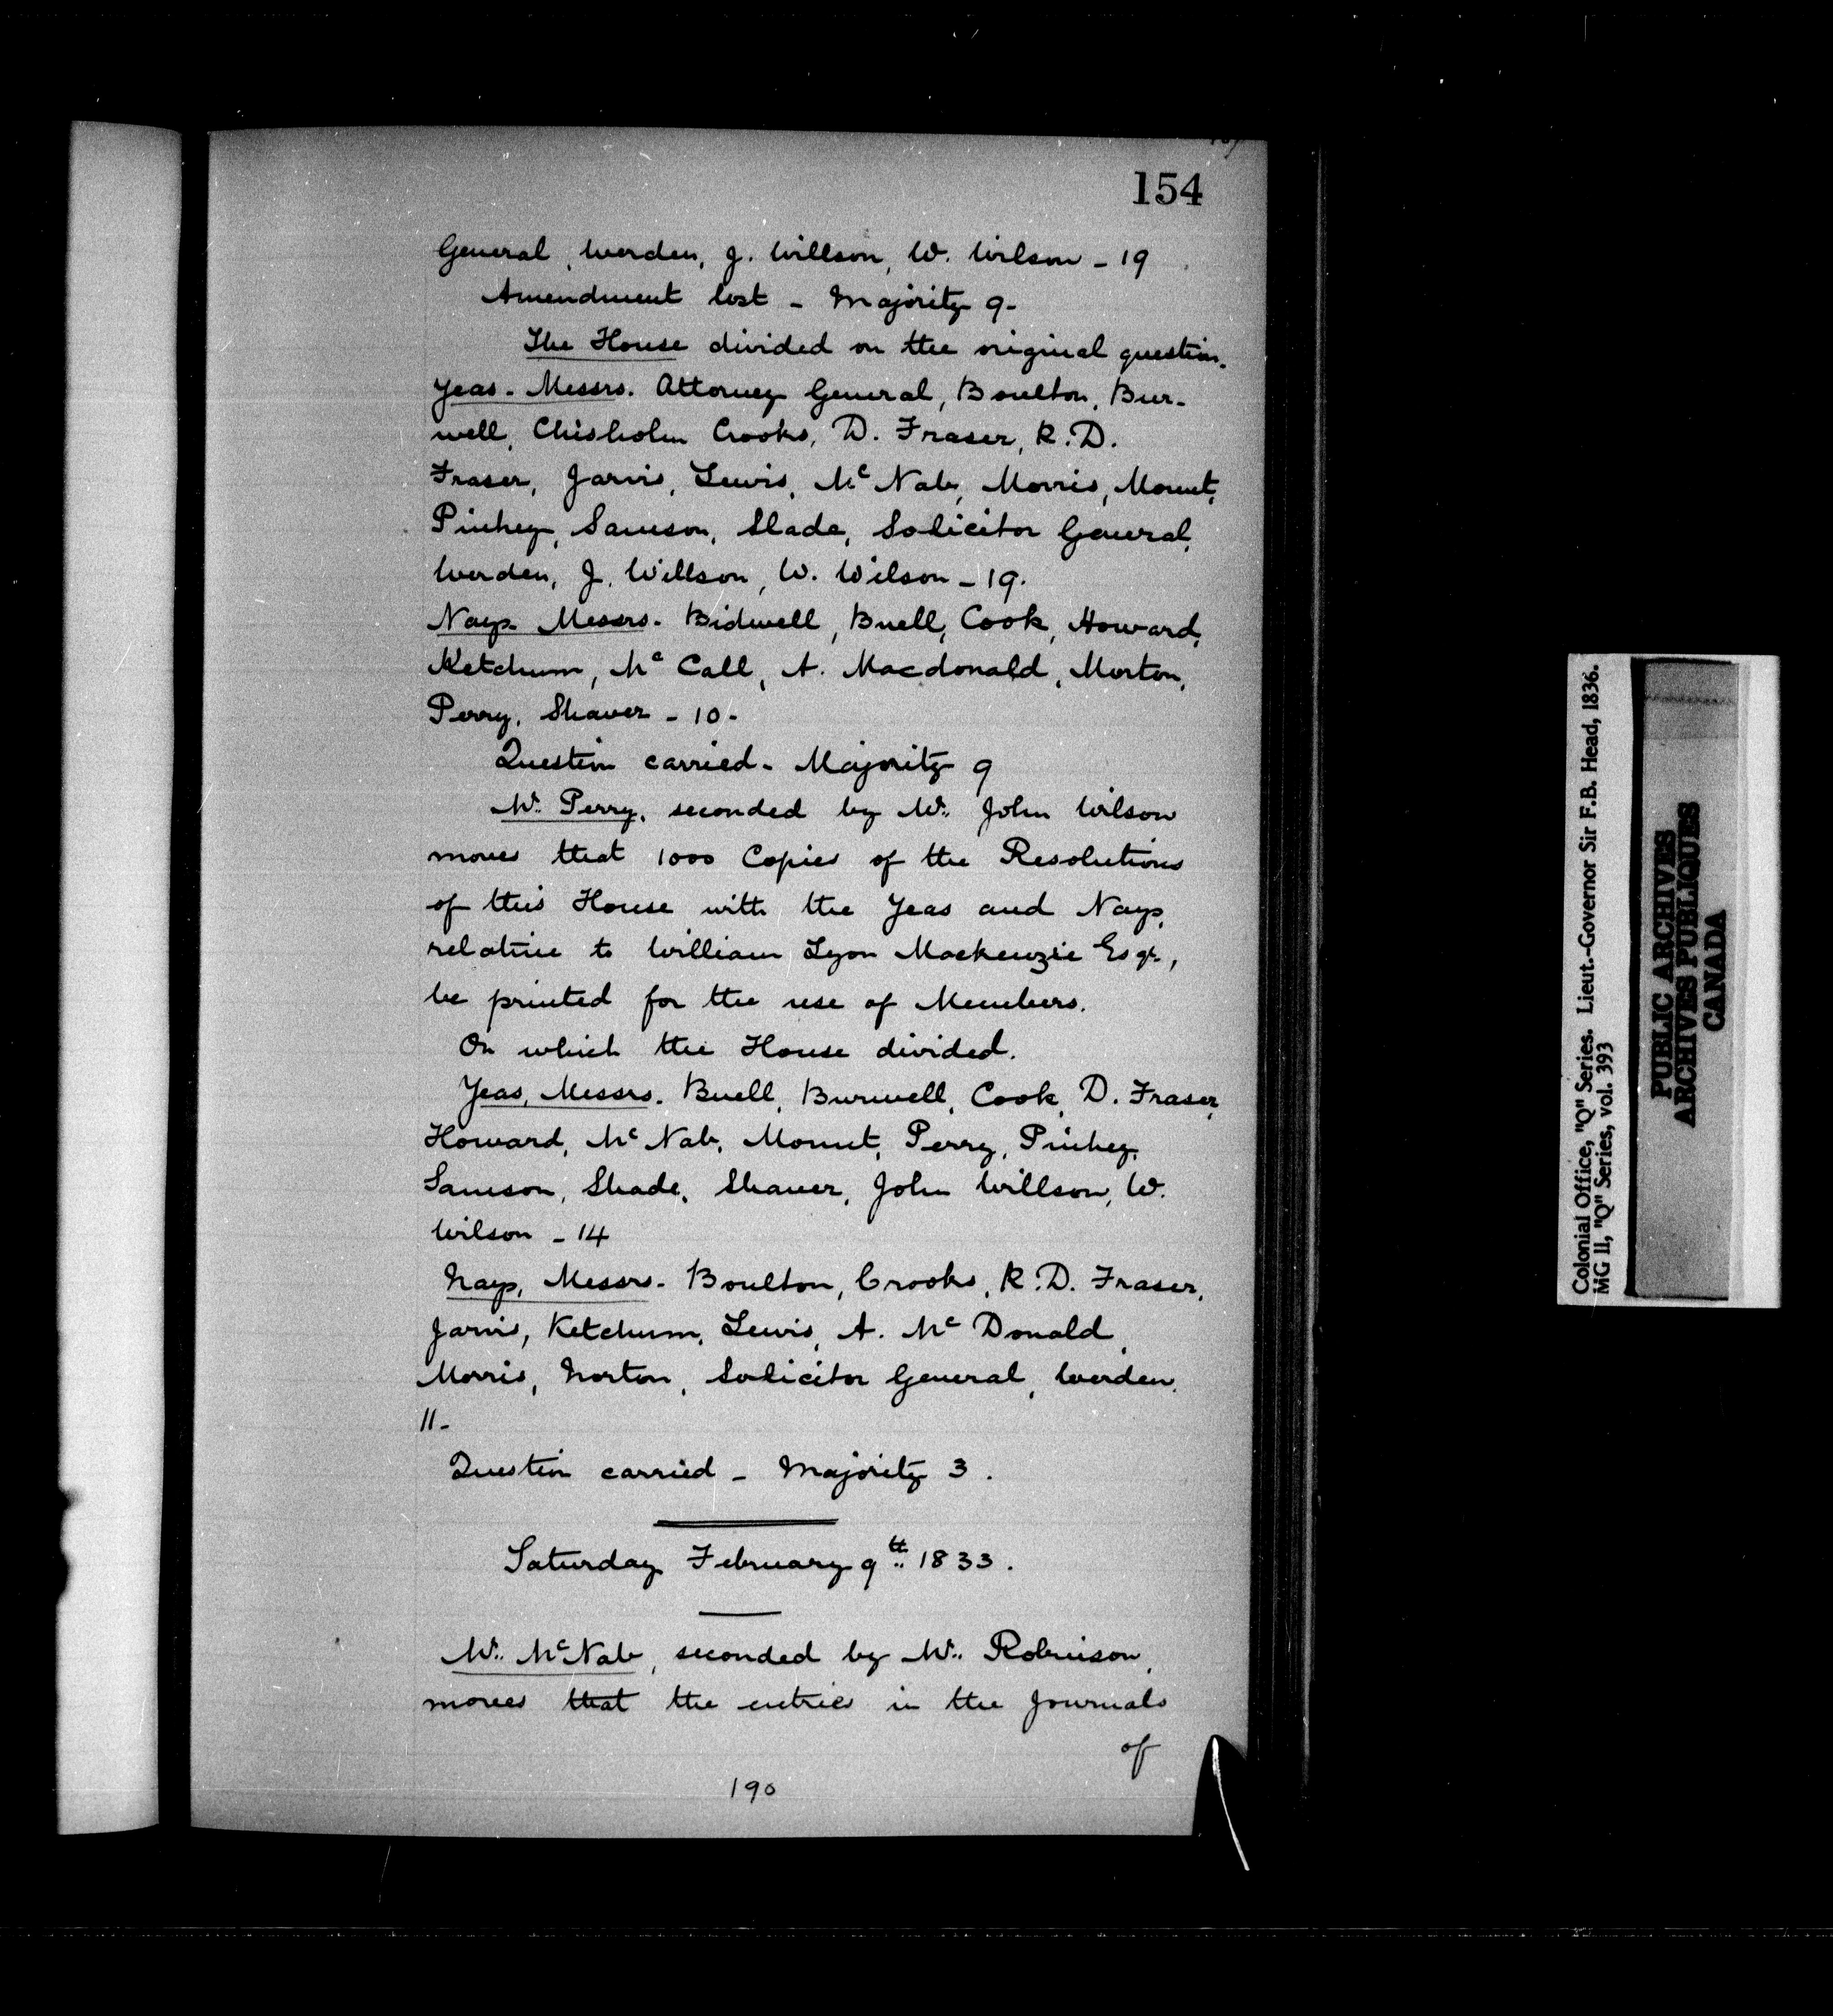 154
General, Werden, J. Willson, W. Wilson - 19
Amendment lost - Majority 9-
The House divided on the original question.
Yeas - Messrs. Attorney General, Boulton, Bur-
well, Chisholm Crooks, D. Fraser, R. D.
Fraser, Jarvis, Lewis, Mc Nab, Morris, Mount,
Pinhey, Samson, Shade, Solicitor General,
Werden, J. Willson, W. Wilson - 19.
Nays - Messrs. Bidwell, Buell, Cook, Howard,
Ketchum, Mc Call, A. Macdonald, Morton,
Perry, Shaver - 10 -
Question carried - Majority 9
Mr. Perry, seconded by Mr. John Wilson
moves that 1000 Copies of the Resolutions
of this House with the Yeas and Nays,
relative to William Lyon Mackenzie Esqr,
be printed for the use of Members.
On which the House divided.
Yeas, Messrs. Buell, Burwell, Cook, D. Fraser,
Howard, Mc Nab, Mount, Perry, Pinhey,
Samson, Shade, Shaver, John Willson, W.
Wilson - 14
Nays, Messrs. Boulton, Crooks, R. D. Fraser,
Jarvis, Ketchum, Lewis, A. Mc Donald,
Morris, Norton, Solicitor General, Werden,
11 -
Question carried - Majority 3.
Saturday February 9th 1833.
Mr. McNab, seconded by Mr. Robinson,
moves that the entries in the Journals
of
190
Colonial Office, "Q" Series. Lieut.-Governor Sir F.B. Head, 1836.
MG 11, "Q" Series, vol. 393
PUBLIC ARCHIVES
ARCHIVES PUBLIQUES
CANADA